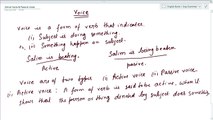 Voice
Voice is a form of verb that indicates
(i) Subject is doing something.
(ii) Something happen on subject.
Salim is beating. Salim is being beaten
Active passive.
Voice are of two types (i) Active voice (ii) Passive voice.
(i) Active voice: A form of verb is said to be active, when it
show that the person or thing denoted by subject does something